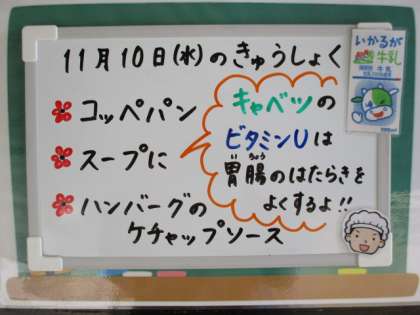 11月10日(水)のきゅうしょく
コッペパン
スープに
ハンバーグの
ケチャップソース
キャベツの
ビタミンUは
胃腸のはたらきを
よくするよ!!
いかるが
牛乳